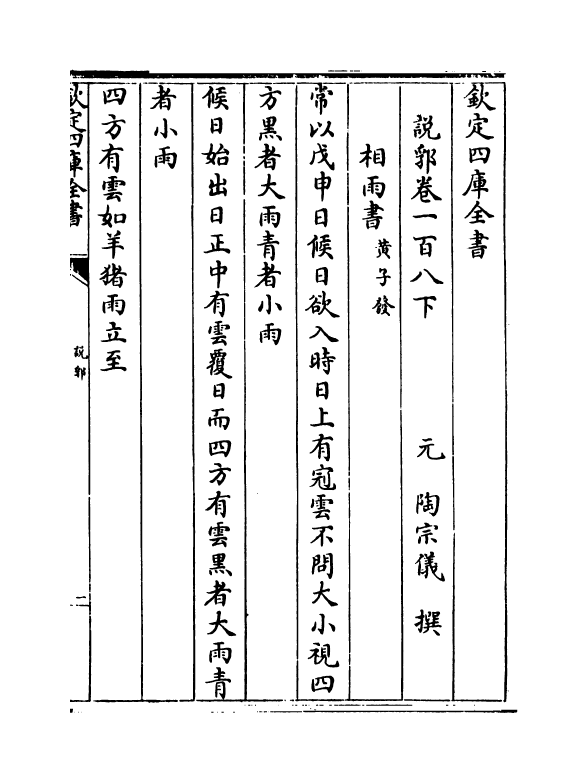 欽定四庫全書
說郛卷一百八下
元 陶宗儀 撰
相雨書 黄子發
常以戊申日候日欲入時日上有冠雲不問大小視四
方黒者大雨青者小雨
候日始出日正中有雲覆日而四方有雲黒者大雨青
者小雨
四方有雲如羊猪雨立至
欽定四庫全書
説郛